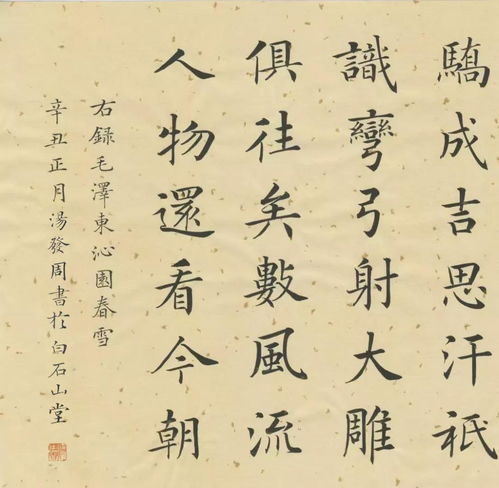 驕成吉思汗祇
識彎弓射大雕
俱往矣數風流
人物還看今朝
右録毛澤東沁園春雪
辛丑正月湯發周書於白石山堂